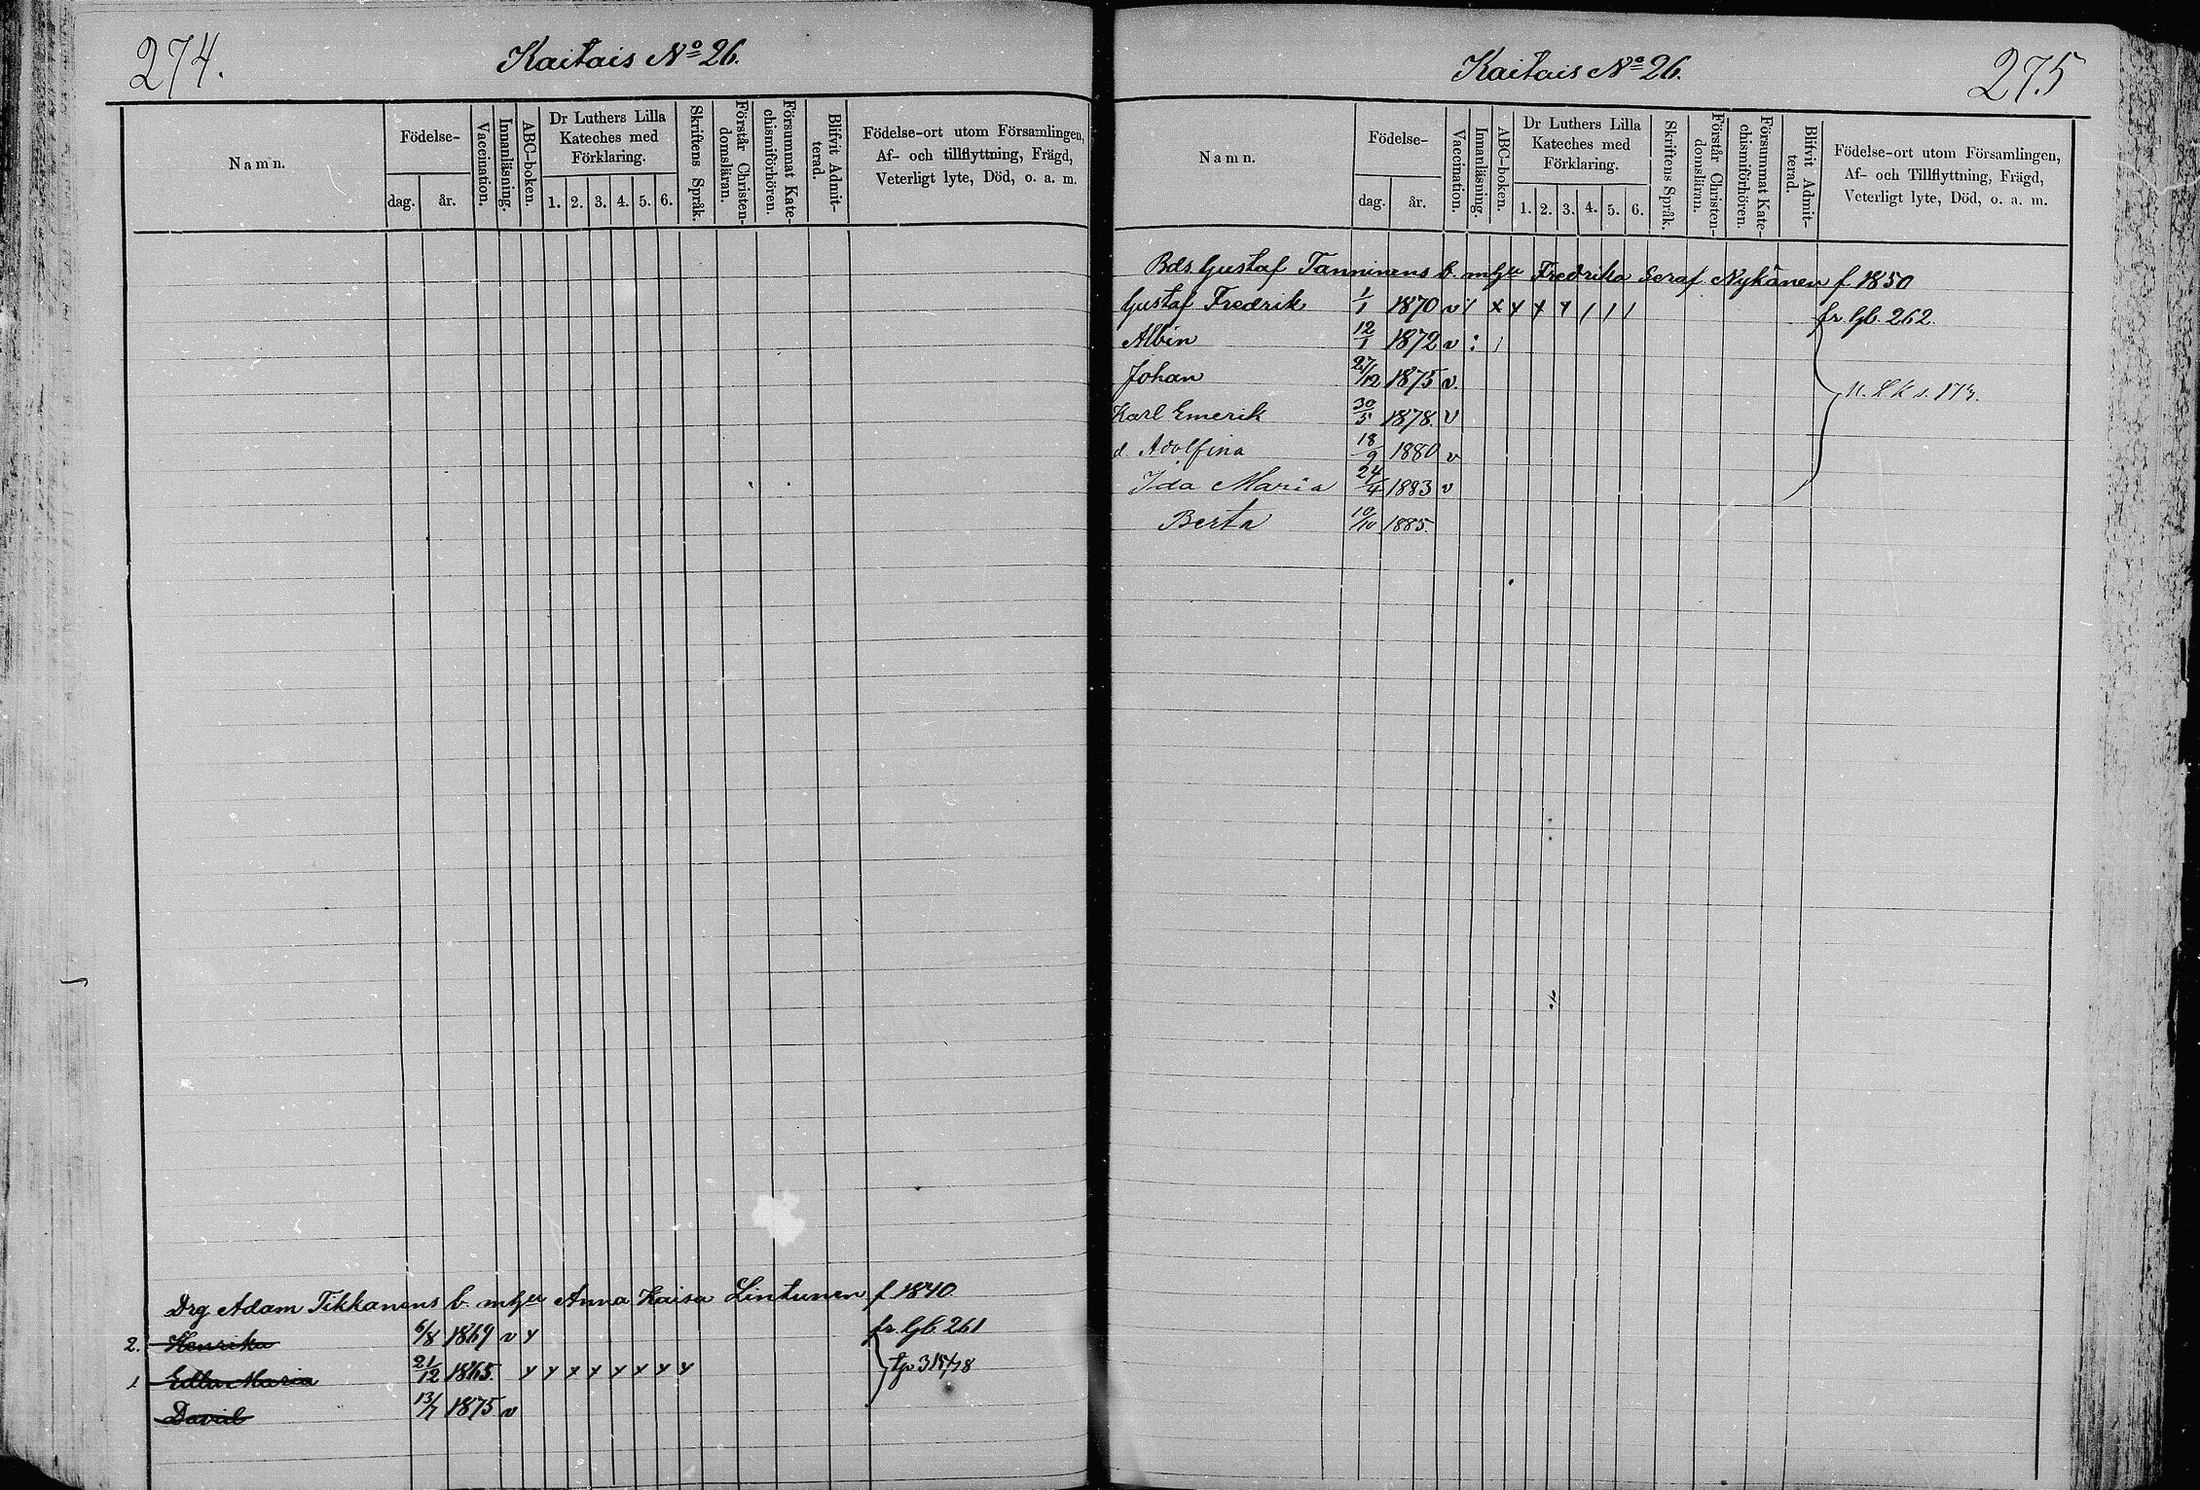 274.
Kaitais No 26.
Namn.
Födelse-
dag.
år.
Vaccination.
Innanläsning.
ABC-boken.
Dr Luthers Lilla
Kateches med
Förklaring.
1. 2. 3. 4. 5. 6.
Skriftens Språk.
Förstår Christen-
domsläran.
Försummat Kate-
chismiförhören.
Blifvit Admit-
terad.
Födelse-ort utom Församlingen,
Af- och tillflyttning, Frägd,
Veterligt lyte, Död, o. a. m.
Drg Adam Tikkanens b. m hu Anna Kaisa Lintunen f 1840.
2. Henrika 6/8 1869 v y fr. Gb. 261
1 Edla Maria 21/12 1865. y y y y y y y y
David 13/7 1875 v
275
Kaitais No 26.
Namn.
Födelse-
dag.
år.
Vaccination.
Innanläsning.
ABC-boken.
Dr Luthers Lilla
Kateches med
Förklaring.
1. 2. 3. 4. 5. 6.
Skriftens Språk.
Förstår Christen-
domsläran.
Försummat Kate-
chismiförhören.
Blifvit Admit-
terad.
Födelse-ort utom Församlingen,
Af- och Tillflyttning, Frägd,
Veterligt lyte, Död, o. a. m.
Bds Gustaf Tanninens b. m hu Fredrika Seraf. Nykänen f 1850
Gustaf Fredrik 1/1 1870 v fr. Gb. 262.
Albin 12/1 1872 v
Johan 27/12 1875 v.
Karl Emerik 30/5 1878. v
d. Adolfina 18/9 1880 v
Ida Maria 24/4 1883 v
Berta 10/10 1885.